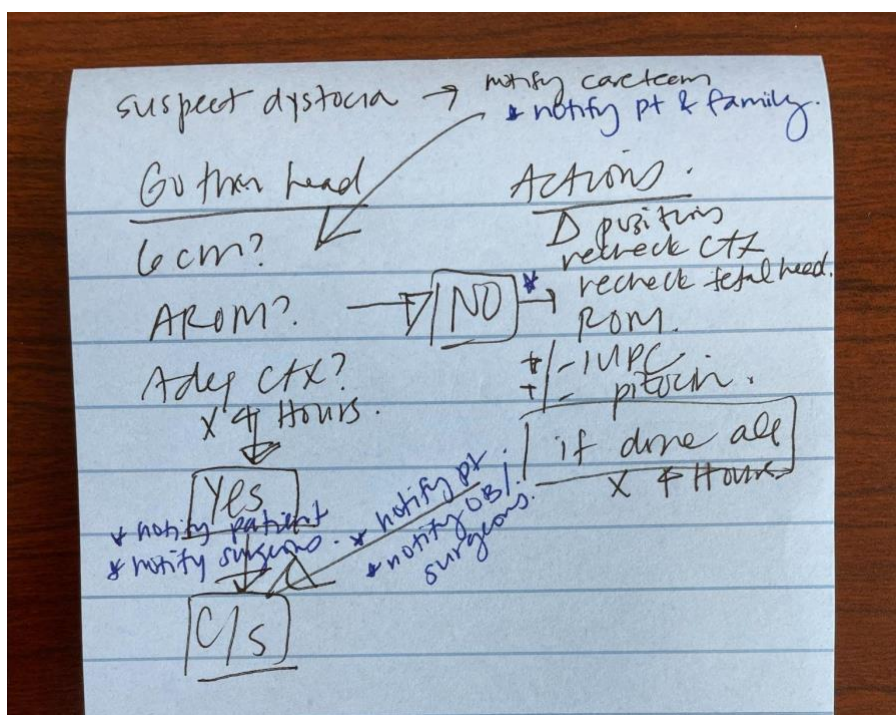 suspect dystocia → notify careteam
* notify pt & family.
Go thru head
6 cm?
AROM?
Adeq CTX?
x 4 Hours.
Yes
* notify patient
* notify surgeons.
C/s
NO
*
Actions.
Δ positions
recheck CTX
recheck fetal head.
ROM.
+/- IUPC
+/- pitocin.
if done all
x 4 Hours
* notify pt.
* notify OB/
surgeons.